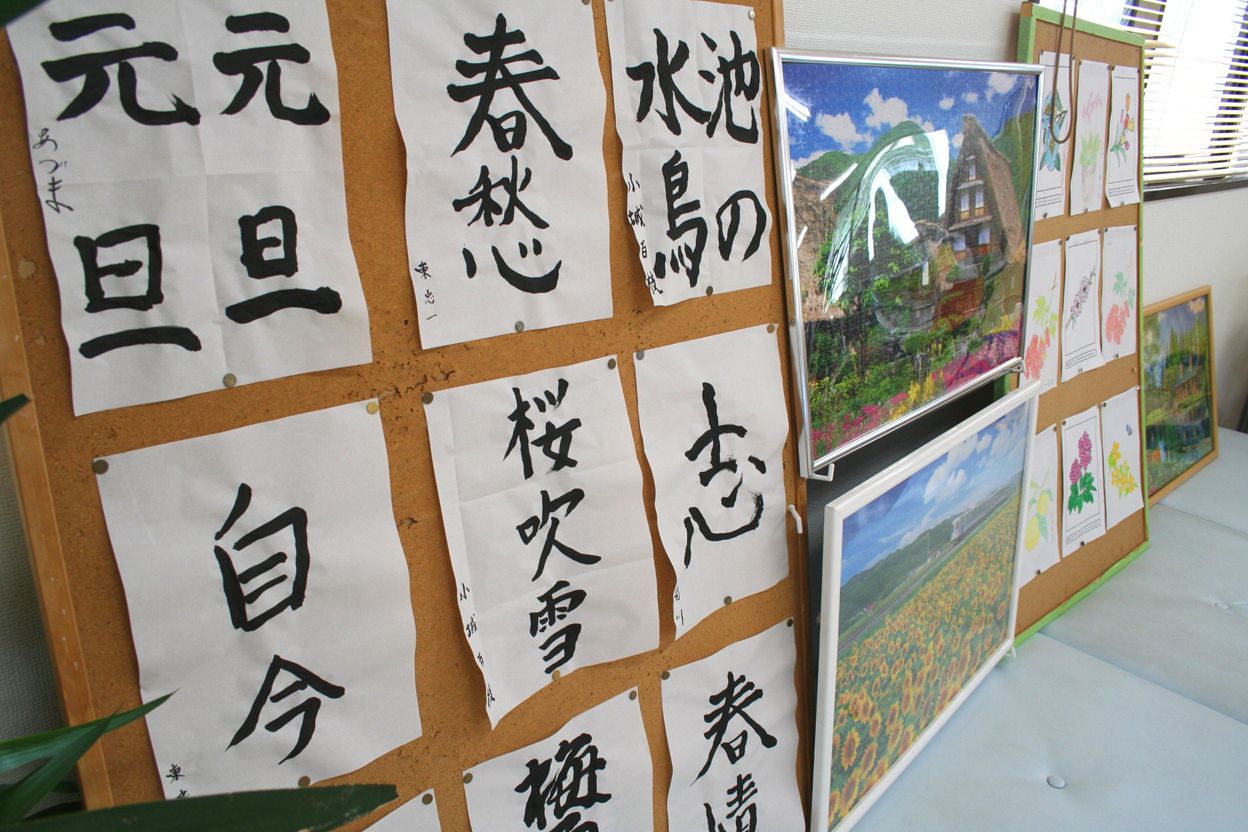 元旦
元旦
あづま
春愁
東忠一
池の
水鳥
小城百
自今
東
桜吹雪
小城百
志
梅
春